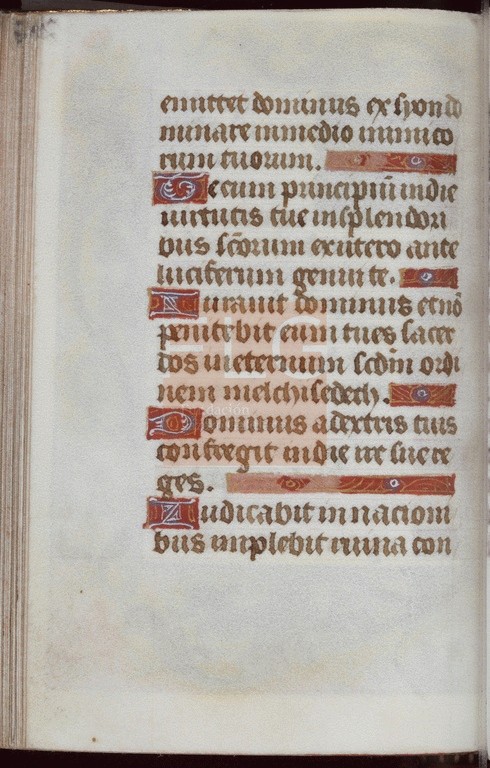 emittet dominus ex syon do
minare in medio inimico
rum tuorum.
Tecum principiū in die
virtutis tue in splendori
bus scōrum ex utero ante
luciferum genui te.
Iuravit dominus et nō
penitebit eum tu es sacer
dos in eternum scdm̄ ordi
nem melchisedech.
Dominus a dextris tuis
confregit in die ire sue re
ges.
Iudicabit in nacioni
bus implebit ruina con